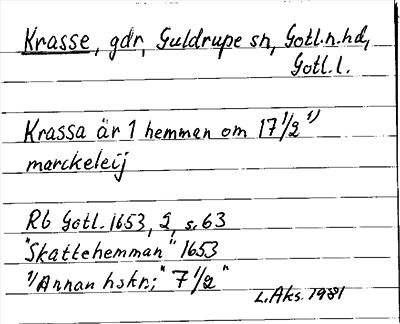 Krasse, gdr, Guldrupe sn, Gotl.n.hd,
Gotl.l.
Krassa är 1 hemman om 17 1/2 1)
marckeleij
Rb Gotl. 1653, 2, s. 63
"Skattehemman" 1653
1) Annan hskr; "7 1/2"
L. Aks. 1981